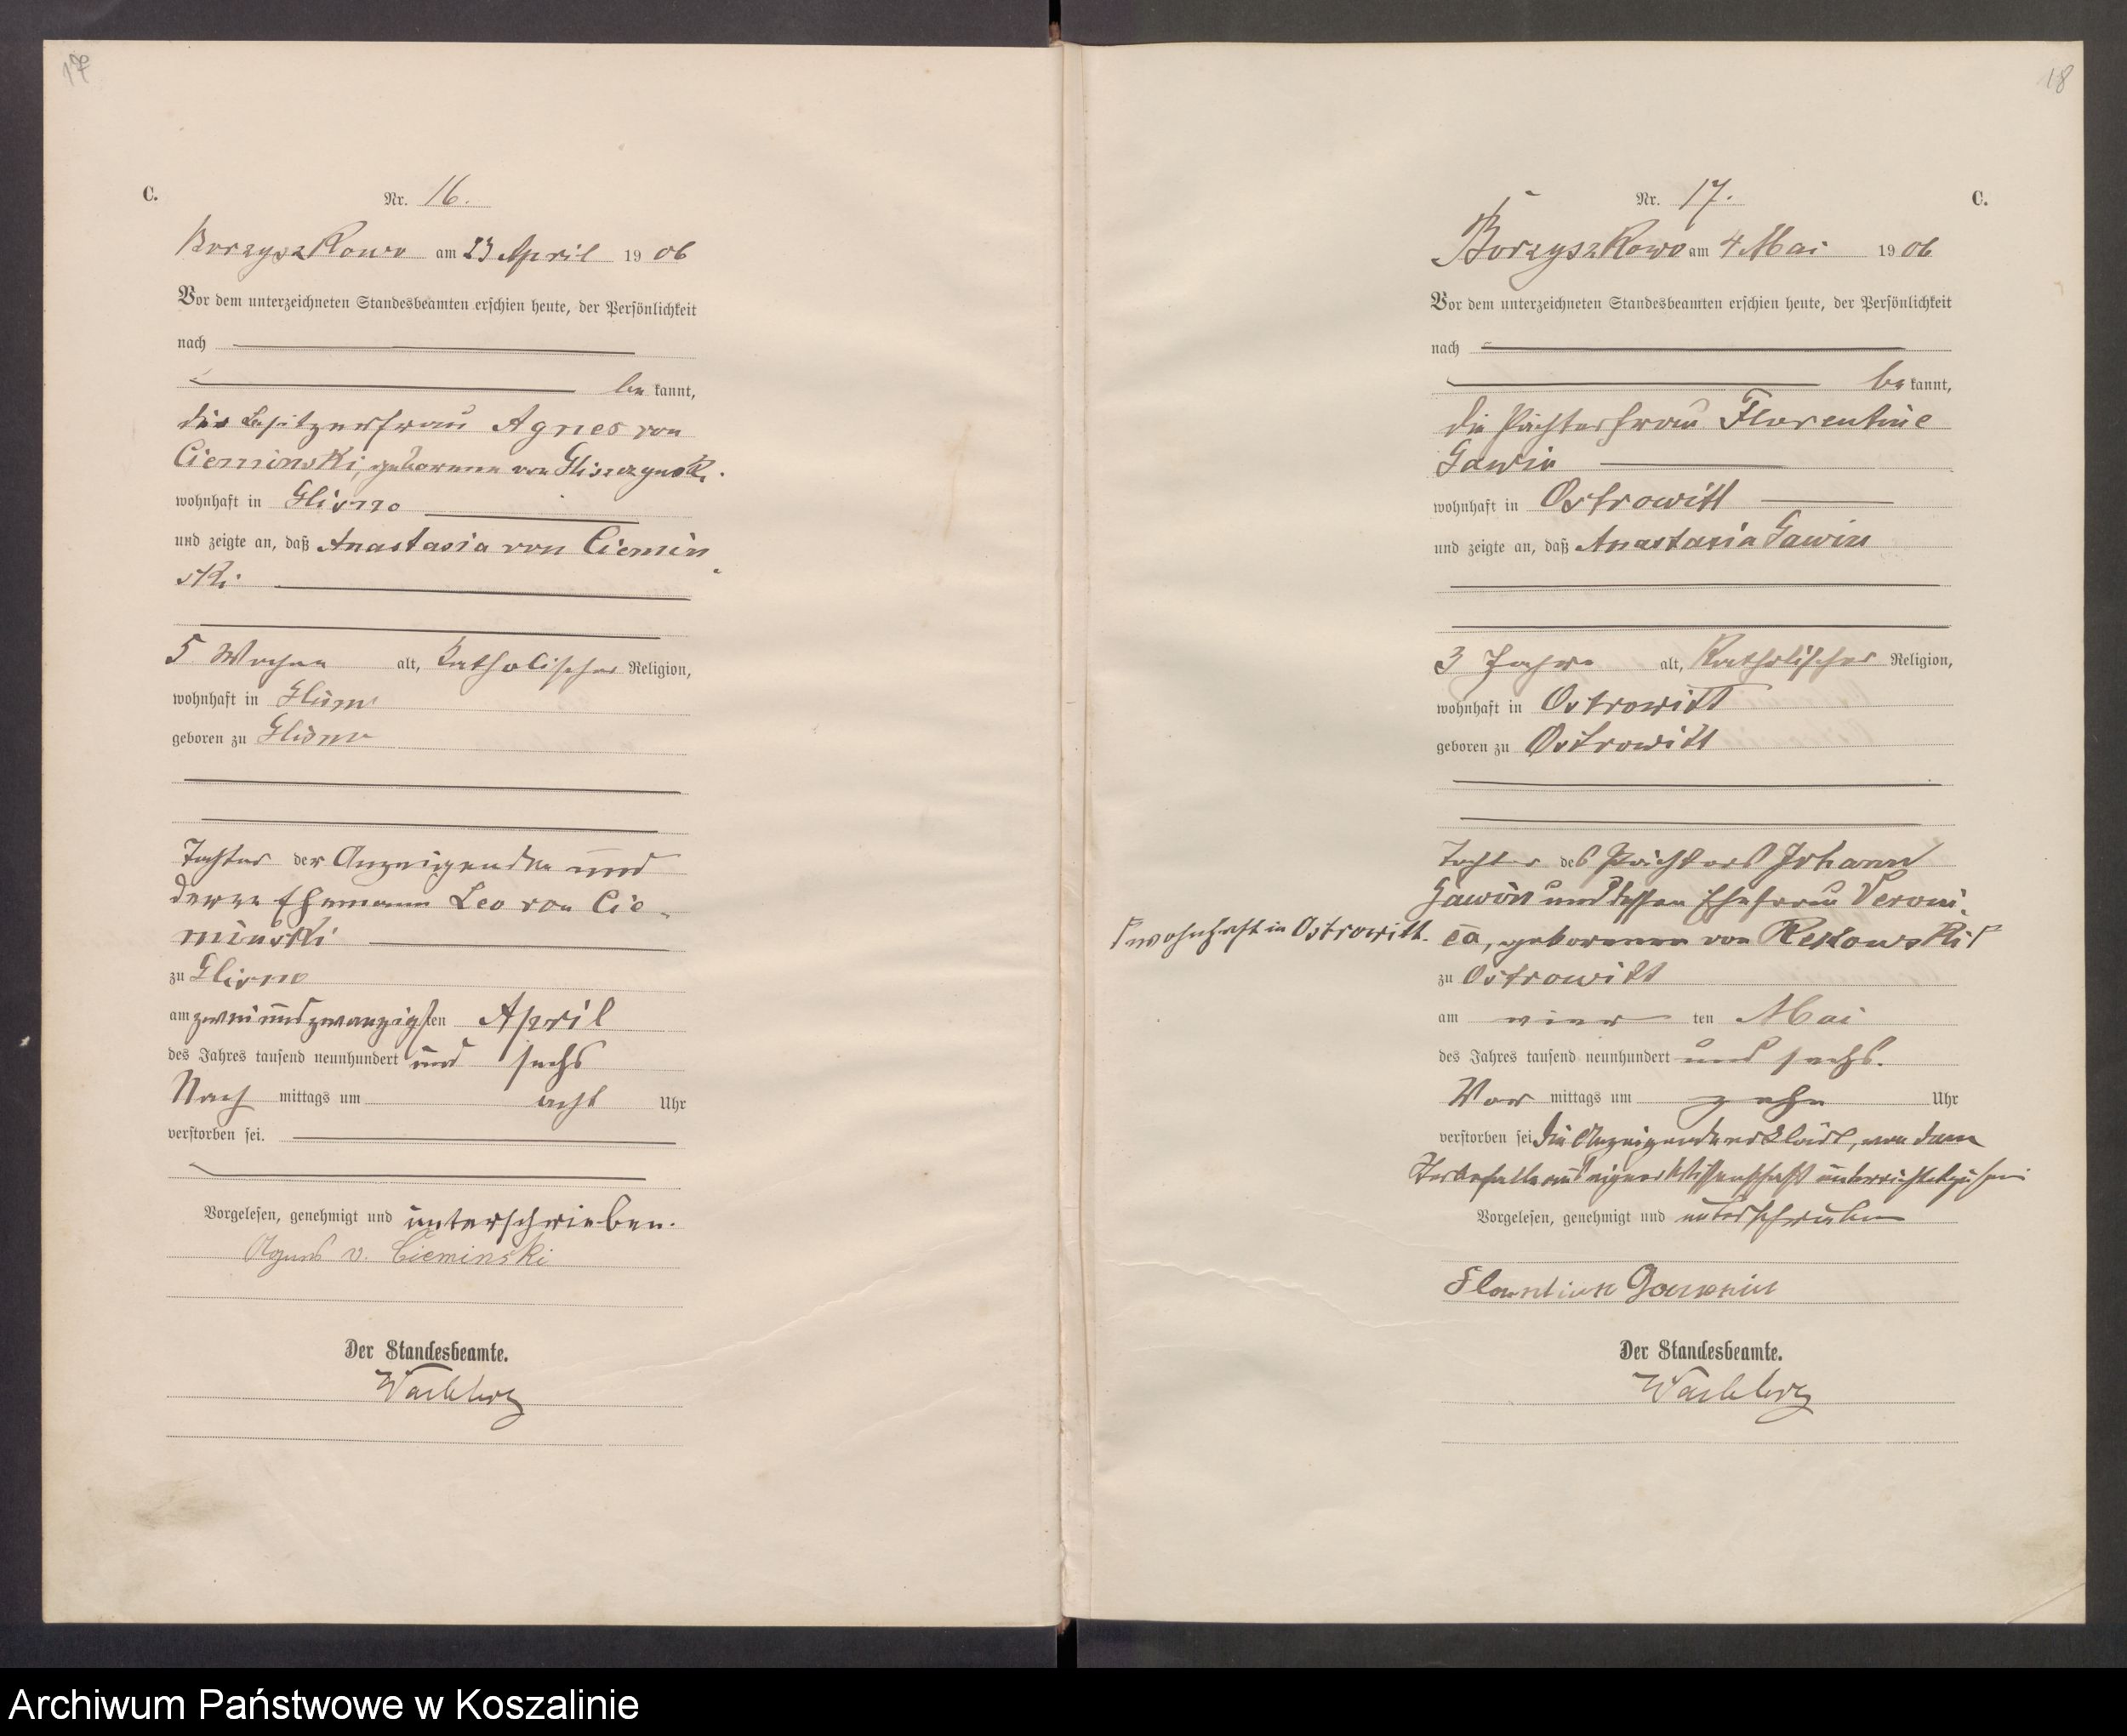 17
C.
Nr. 16.
Borzyszkowo am 23 April 1906
Vor dem unterzeichneten Standesbeamten erschien heute, der Persönlichkeit
nach
bekannt,
die Besitzerfrau Agnes von
Cieminski, geborene von Gliszczynski
wohnhaft in Glisno
und zeigte an, daß Anastasia von Ciemin
ski
5 Wochen alt, katholischer Religion,
wohnhaft in Glisno
geboren zu Glisno
Tochter der Anzeigenden und
deren Ehemann Leo von Cie-
minski
zu Glisno
am zweiundzwanzigsten April
des Jahres tausend neunhundert und sechs
Nachmittags um acht Uhr
verstorben sei.
Vorgelesen, genehmigt und unterschrieben.
Agnes v. Cieminski
Der Standesbeamte.
18
Nr. 17. C.
Borzyszkowo am 4 Mai 1906
Vor dem unterzeichneten Standesbeamten erschien heute, der Persönlichkeit
nach
bekannt,
die Pächterfrau Florentine
Gawin
wohnhaft in Ostrowitt
und zeigte an, daß Anastasia Gawin
3 Jahre alt, katholischer Religion,
wohnhaft in Ostrowitt
geboren zu Ostrowitt
Tochter des Pächters Johann
Gawin und dessen Ehefrau Veroni-
ca, geborenen von Rekowski
wohnhaft in Ostrowitt.
zu Ostrowitt
am vierten Mai
des Jahres tausend neunhundert und sechs.
Vormittags um zehn Uhr
verstorben sei die Anzeigende erklärt, von dem
Sterbefalle aus eigner Wissenschaft unterrichtet zu sein
Vorgelesen, genehmigt und unterschrieben
Florentine Gawin
Der Standesbeamte.
Archiwum Państwowe w Koszalinie